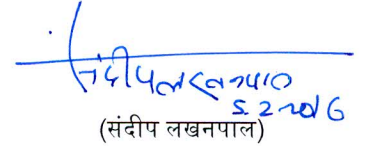 संदीप लखनपाल
5.2.2016
(संदीप लखनपाल)